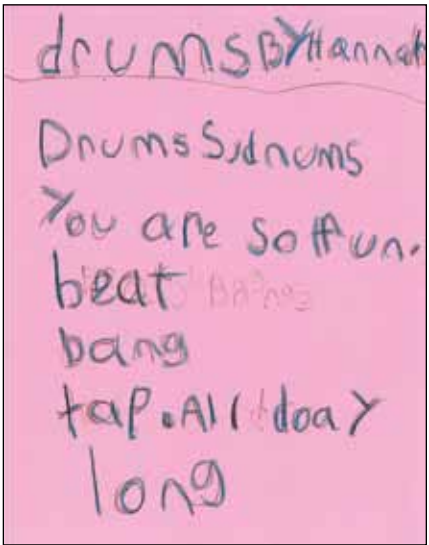 drums BY Hannah
Drums S,drums
You are so fun.
beat
bang
tap.All doay
long